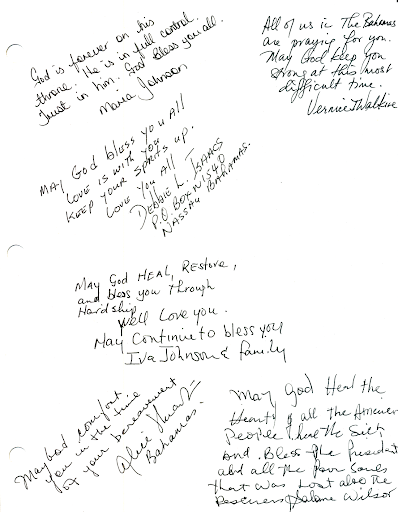 God is forever on his
throne. He is in full control.
Trust in him. God bless you all.
Maria Johnson
All of us in The Bahamas
are praying for you.
May God keep you
strong at this most
difficult time.
MAY God bless you All
Love is with you
KEEP YOUR SPIRITS UP.
LOVE YOU All
DEBBIE L. ISAACS
P.O. BOX N1540
NASSAU BAHAMAS.
May God HEAL, Restore,
and bless you Through
Hardship
Well Love you.
May Continue to bless you
Iva Johnson & family
May God comfort
you in the time
of your bereavement
Bahamas.
May God Heal the
Hearts of all the
People Heal the Sick
And Bless The President
and all the Poor Souls
That was Lost also The
Rescuers Wilson